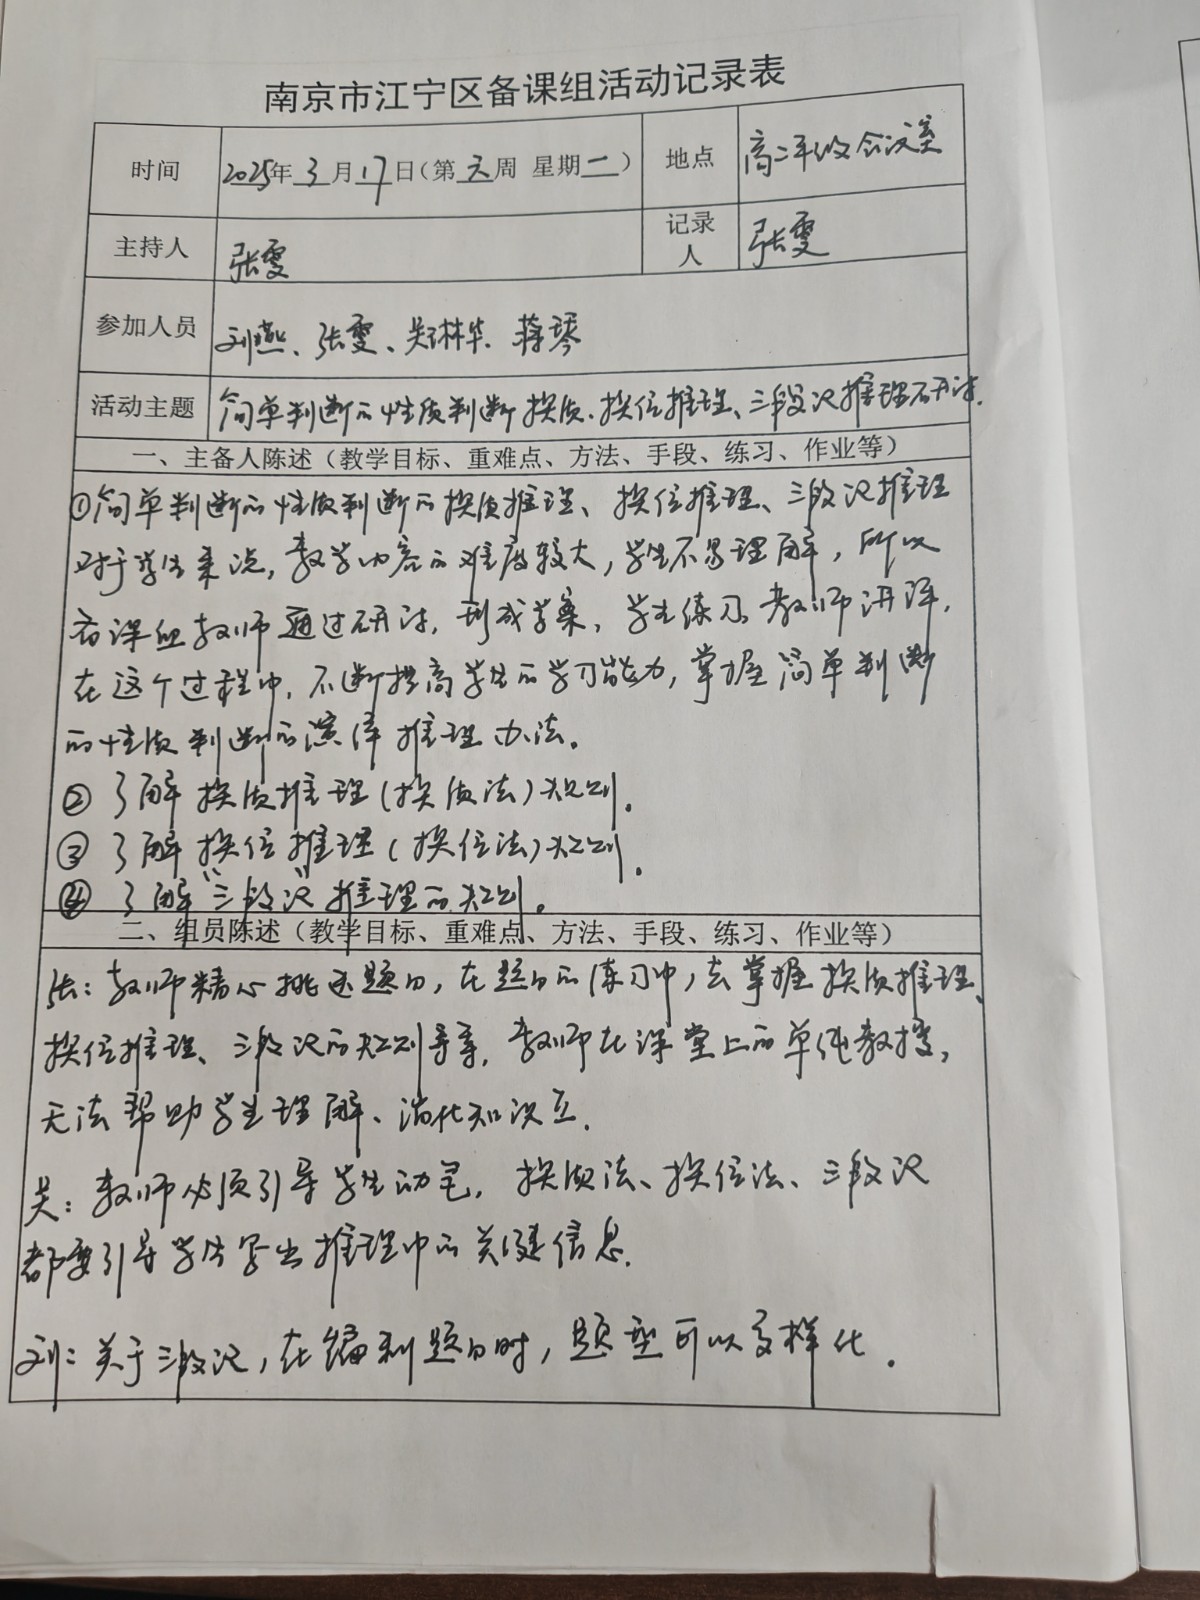 南京市江宁区备课组活动记录表
时间 2025年3月17日（第六周 星期一） 地点 高二年级会议室
主持人 张雯 记录人 张雯
参加人员 刘燕、张雯、吴琳华、蒋琴
活动主题 简单判断的性质判断换质、换位推理、三段论推理研讨.
一、主备人陈述（教学目标、重难点、方法、手段、练习、作业等）
①简单判断的性质判断的换质推理、换位推理、三段论推理
对于学生来说，教学内容的难度较大，学生不易理解，所以
备课组教师通过研讨，形成学案，学生练习，教师讲评，
在这个过程中，不断提高学生的学习能力，掌握简单判断
的性质判断的演绎推理办法。
② 了解换质推理（换质法）规则。
③ 了解换位推理（换位法）规则。
④ 了解“三段论”推理的规则。
二、组员陈述（教学目标、重难点、方法、手段、练习、作业等）
张：教师精心挑选题目，在题目的练习中，去掌握换质推理、
换位推理、三段论的规则等等，教师在课堂上的单纯教授，
无法帮助学生理解、消化知识点.
吴：教师必须引导学生动笔，换质法、换位法、三段论
都要引导学生写出推理中的关键信息.
刘：关于三段论，在编制题目时，题型可以多样化。